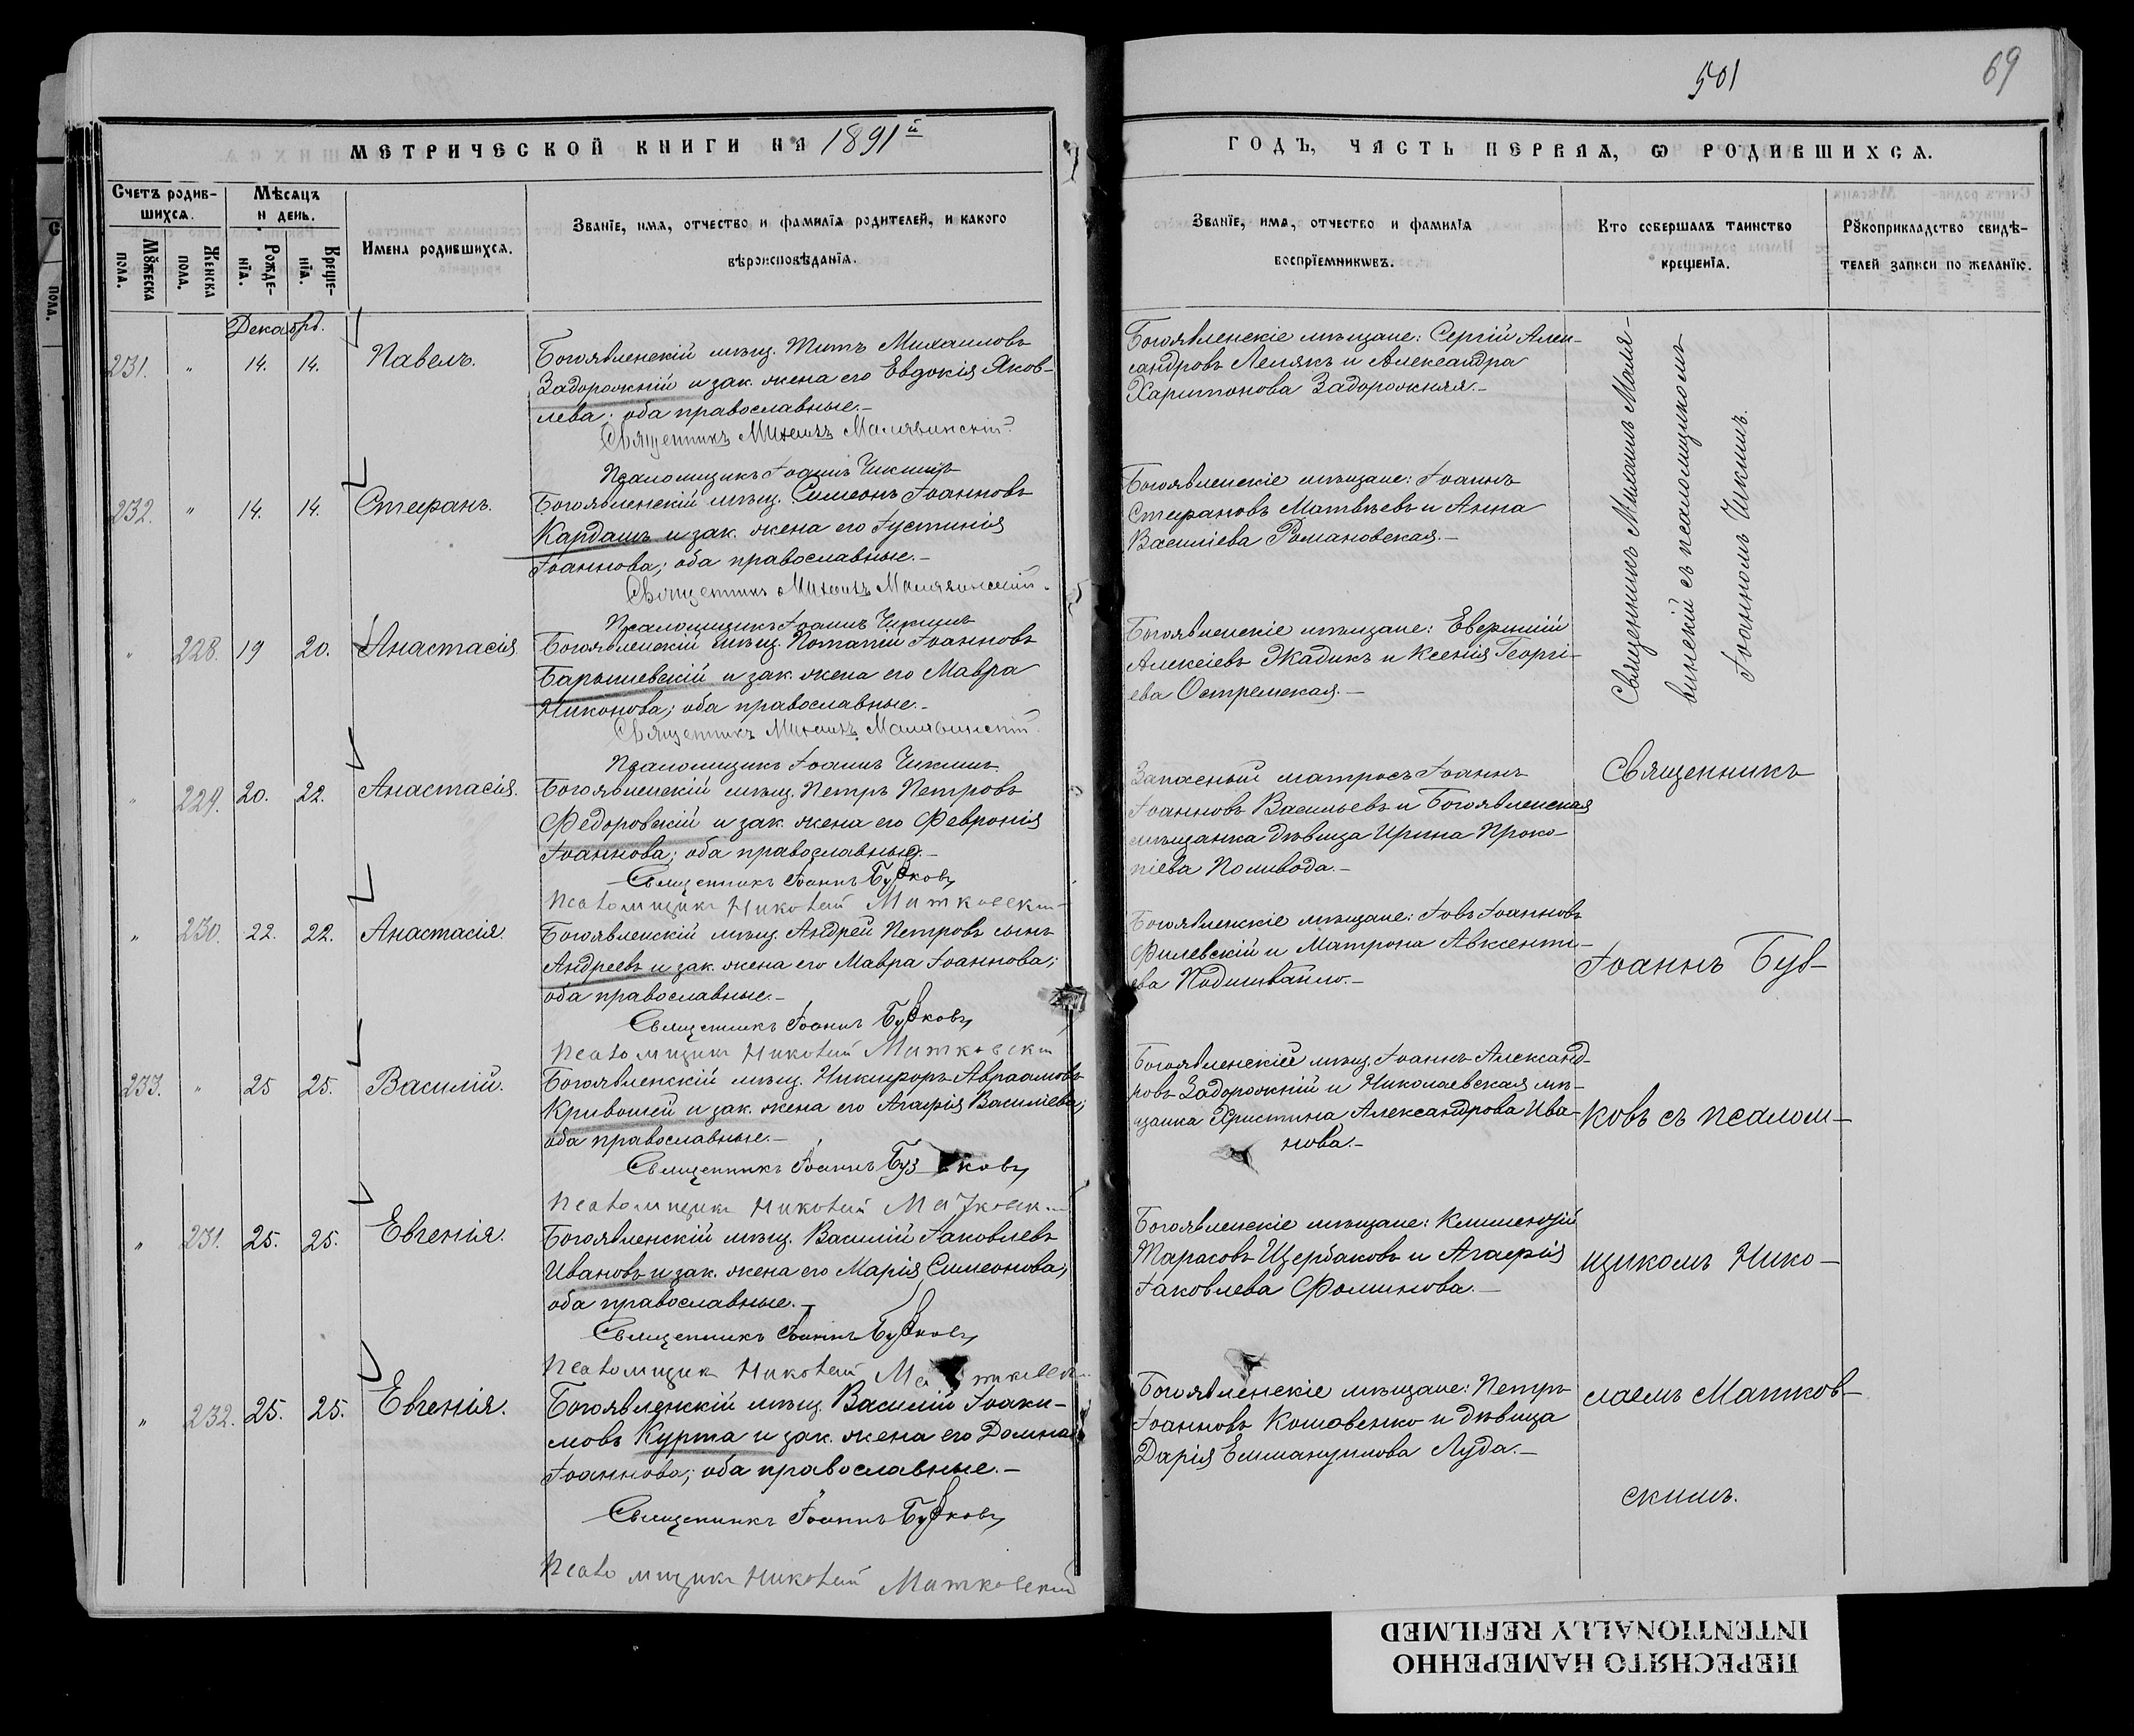 501
69
МЕТРИЧЕСКОЙ КНИГИ НА 1891й
ГОДЪ, ЧАСТЬ ПЕРВАЯ, Ѡ РОДИВШИХСЯ.
Счетъ родив-
шихся.
Мѣсяцъ
и день.
Мꙋжеска
пола.
Женска
пола.
Рожде-
нія.
Креще-
нія.
Имена родившихся.
Званіе, имя, отчество и фамилія родителей, и какого
вѣроисповѣданія.
Званіе, имя, отчество и фамилія
воспріемникѡвъ.
Кто совершалъ таинство
крещенія.
Рꙋкоприкладство свидѣ-
телей записи по желанію.
Декабрь.
231. " 14. 14. Павелъ.
Богоявленскій мѣщ. Титъ Михаиловъ
Задорожній и зак. жена его Евдокія Яков-
лева; оба православные.-
Священникъ Михаилъ Малявинскій.
Псаломщикъ Іоаннъ Чикмин
Богоявленскіе мѣщане: Сергій Алек-
сандровъ Лепякъ и Александра
Харитонова Задорожняя.-
232. " 14. 14. Стефанъ.
Богоявленскій мѣщ. Симеонъ Іоанновъ
Кардашъ и зак. жена его Іустинія
Іоаннова; оба православные.-
Священникъ Михаилъ Малявинскій.
Псаломщикъ Іоаннъ Чикмин
Богоявленскіе мѣщане: Іоаннъ
Стефановъ Матвѣевъ и Анна
Василіева Романовская.-
" 228. 19 20. Анастасія
Богоявленскій мѣщ. Потапій Іоанновъ
Барышевскій и зак. жена его Мавра
Никонова; оба православные.-
Священникъ Михаилъ Малявинскій.
Псаломщикъ Іоаннъ Чикмин
Богоявленскіе мѣщане: Евфимій
Алексіевъ Жадикъ и Ксенія Георгі-
ева Остремская.-
Священникъ Михаилъ Маля-
винскій съ псаломщикомъ
Іоанномъ
" 229. 20. 22. Анастасія.
Богоявленскій мѣщ. Петръ Петровъ
Федоровскій и зак. жена его Февронія
Іоаннова; оба православные.-
Священникъ Іоаннъ Бузковъ
Псаломщикъ Николай Матковскій
Запасный матросъ Іоаннъ
Іоанновъ Васильевъ и Богоявленская
мѣщанка дѣвица Ирина Проко-
піева Поливода.-
Священникъ
" 230. 22. 22. Анастасія.
Богоявленскій мѣщ. Андрей Петровъ сынъ
Андреевъ и зак. жена его Мавра Іоаннова;
оба православные.-
Священникъ Іоаннъ Бузковъ
Псаломщикъ Николай Матковскій
Богоявленскіе мѣщане: Іовъ Іоанновъ
Филевскій и Матрона Авксенті-
ева Подшивайло.-
Іоаннъ Буз-
233. " 25 25. Василій.
Богоявленскій мѣщ. Никифоръ Авраамовъ
Кривошей и зак. жена его Агафія Василіева;
оба православные.-
Священникъ Іоаннъ Бузковъ
Псаломщикъ Николай Матковск
Богоявленскій мѣщ. Іоаннъ Александ-
ровъ Задорожній и Николаевская мѣ-
щанка Христина Александрова Ива-
нова.-
ковъ съ псалом-
" 231. 25. 25. Евгенія.
Богоявленскій мѣщ. Василій Іаковлевъ
Ивановъ и зак. жена его Марія Симеонова;
оба православные.-
Священникъ Іоаннъ Бузковъ
Псаломщик Николай Матковск
Богоявленскіе мѣщане: Климентій
Тарасовъ Щербаковъ и Агафія
Іаковлева Фоминова.-
щикомъ Нико-
" 232. 25. 25. Евгенія.
Богоявленскій мѣщ. Василій Іоаки-
мовъ Курта и зак. жена его Домна
Іоаннова; оба православные.-
Священникъ Іоаннъ Бузковъ
Псаломщикъ Николай Матковскій
Богоявленскіе мѣщане: Петръ
Іоанновъ Кошовенко и дѣвица
Дарія Еммануилова Луда.-
лаемъ Матков-
скимъ.
ПЕРЕСНЯТО НАМЕРЕННО
INTENTIONALLY REFILMED